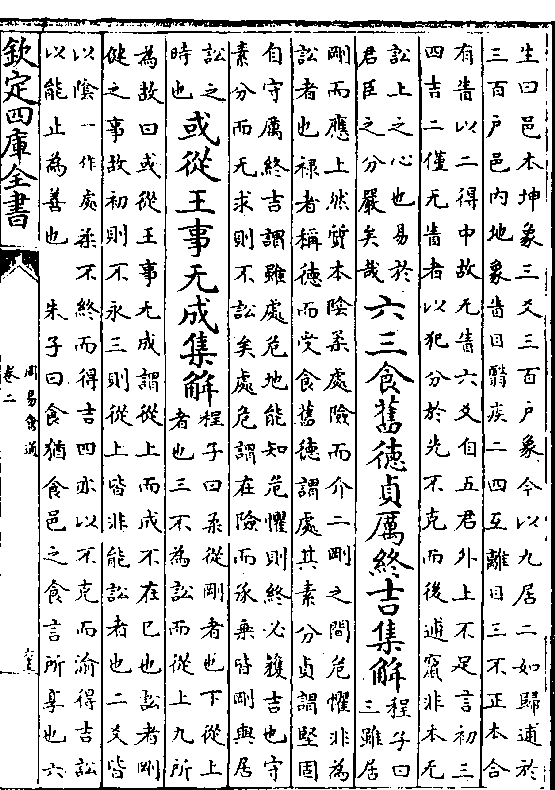 生曰邑本坤象三爻三百户象今以九居二如歸逋於
三百户邑内地象眚目翳疾二四互離目三不正本合
有眚以二得中故无眚六爻自五君外上不足言初三
四吉二僅无眚者以犯分於先不克而後逋竄非本无
訟上之心也易於
君臣之分嚴矣哉
六三食舊徳貞厲終吉集解
程子曰
三雖居
剛而應上然質本陰柔處險而介二剛之間危懼非為
訟者也禄者稱徳而受食舊徳謂處其素分貞謂堅固
自守厲終吉謂雖處危地能知危懼則終必獲吉也守
素分而无求則不訟矣處危謂在險而承乗皆剛與居
訟之
時也
或從王事无成集解
程子曰柔從剛者也下從上
者也三不為訟而從上九所
為故曰或從王事无成謂從上而成不在已也訟者剛
健之事故初則不永三則從上皆非能訟者也二爻皆
以陰一作處柔不終而得吉四亦以不克而渝得吉訟
以能止為善也 朱子曰食猶食邑之食言所享也六
欽定四庫全書
周易會通
卷二